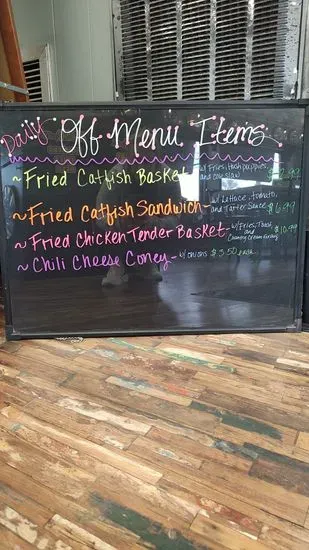 Daily Off Menu Items
~Fried Catfish Basket w/ Fries, Hush puppies,
and cole slaw
~Fried Catfish Sandwich- w/ Lettace, tomato,
and Tarter Sauce $6.99
~Fried Chicken Tender Basket- w/ Fries, Toast
and Country Cream Gravy $10.99
~Chili Cheese Coney- w/ onions $3.50 each